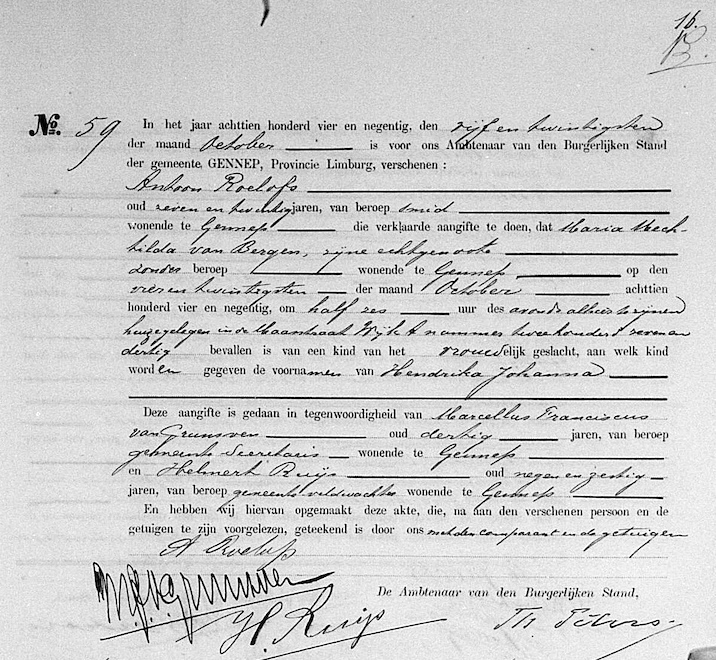 16.
B.
No. 59
In het jaar achttien honderd vier en negentig, den vijf en twintigsten
der maand October is voor ons Ambtenaar van den Burgerlijken Stand
der gemeente GENNEP, Provincie Limburg, verschenen :
Antoon Roelofs
oud zeven en twintig jaren, van beroep smid
wonende te Gennep die verklaarde aangifte te doen, dat Maria Mech-
tilda van Bergen, zijne echtgenoote
zonder beroep wonende te Gennep op den
vier en twintigsten der maand October achttien
honderd vier en negentig, om half zes uur des avonds alhier te zijnen
huize gelegen in de Maasstraat Wijk A nummer twee honderd zeven en
dertig bevallen is van een kind van het vrouwelijk geslacht, aan welk kind
worden gegeven de voornamen van Hendrika Johanna
Deze aangifte is gedaan in tegenwoordigheid van Marcellus Franciscus
van Grunsven oud dertig jaren, van beroep
gemeente-Secretaris wonende te Gennep
en Helmert Ruijs oud negen en zestig
jaren, van beroep gemeente veldwachter wonende te Gennep
En hebben wij hiervan opgemaakt deze akte, die, na aan den verschenen persoon en de
getuigen te zijn voorgelezen, geteekend is door ons met den comparant en de getuigen
A Roelofs
M.F. v. Grunsven
H. Ruijs
De Ambtenaar van den Burgerlijken Stand,
Th. Peters